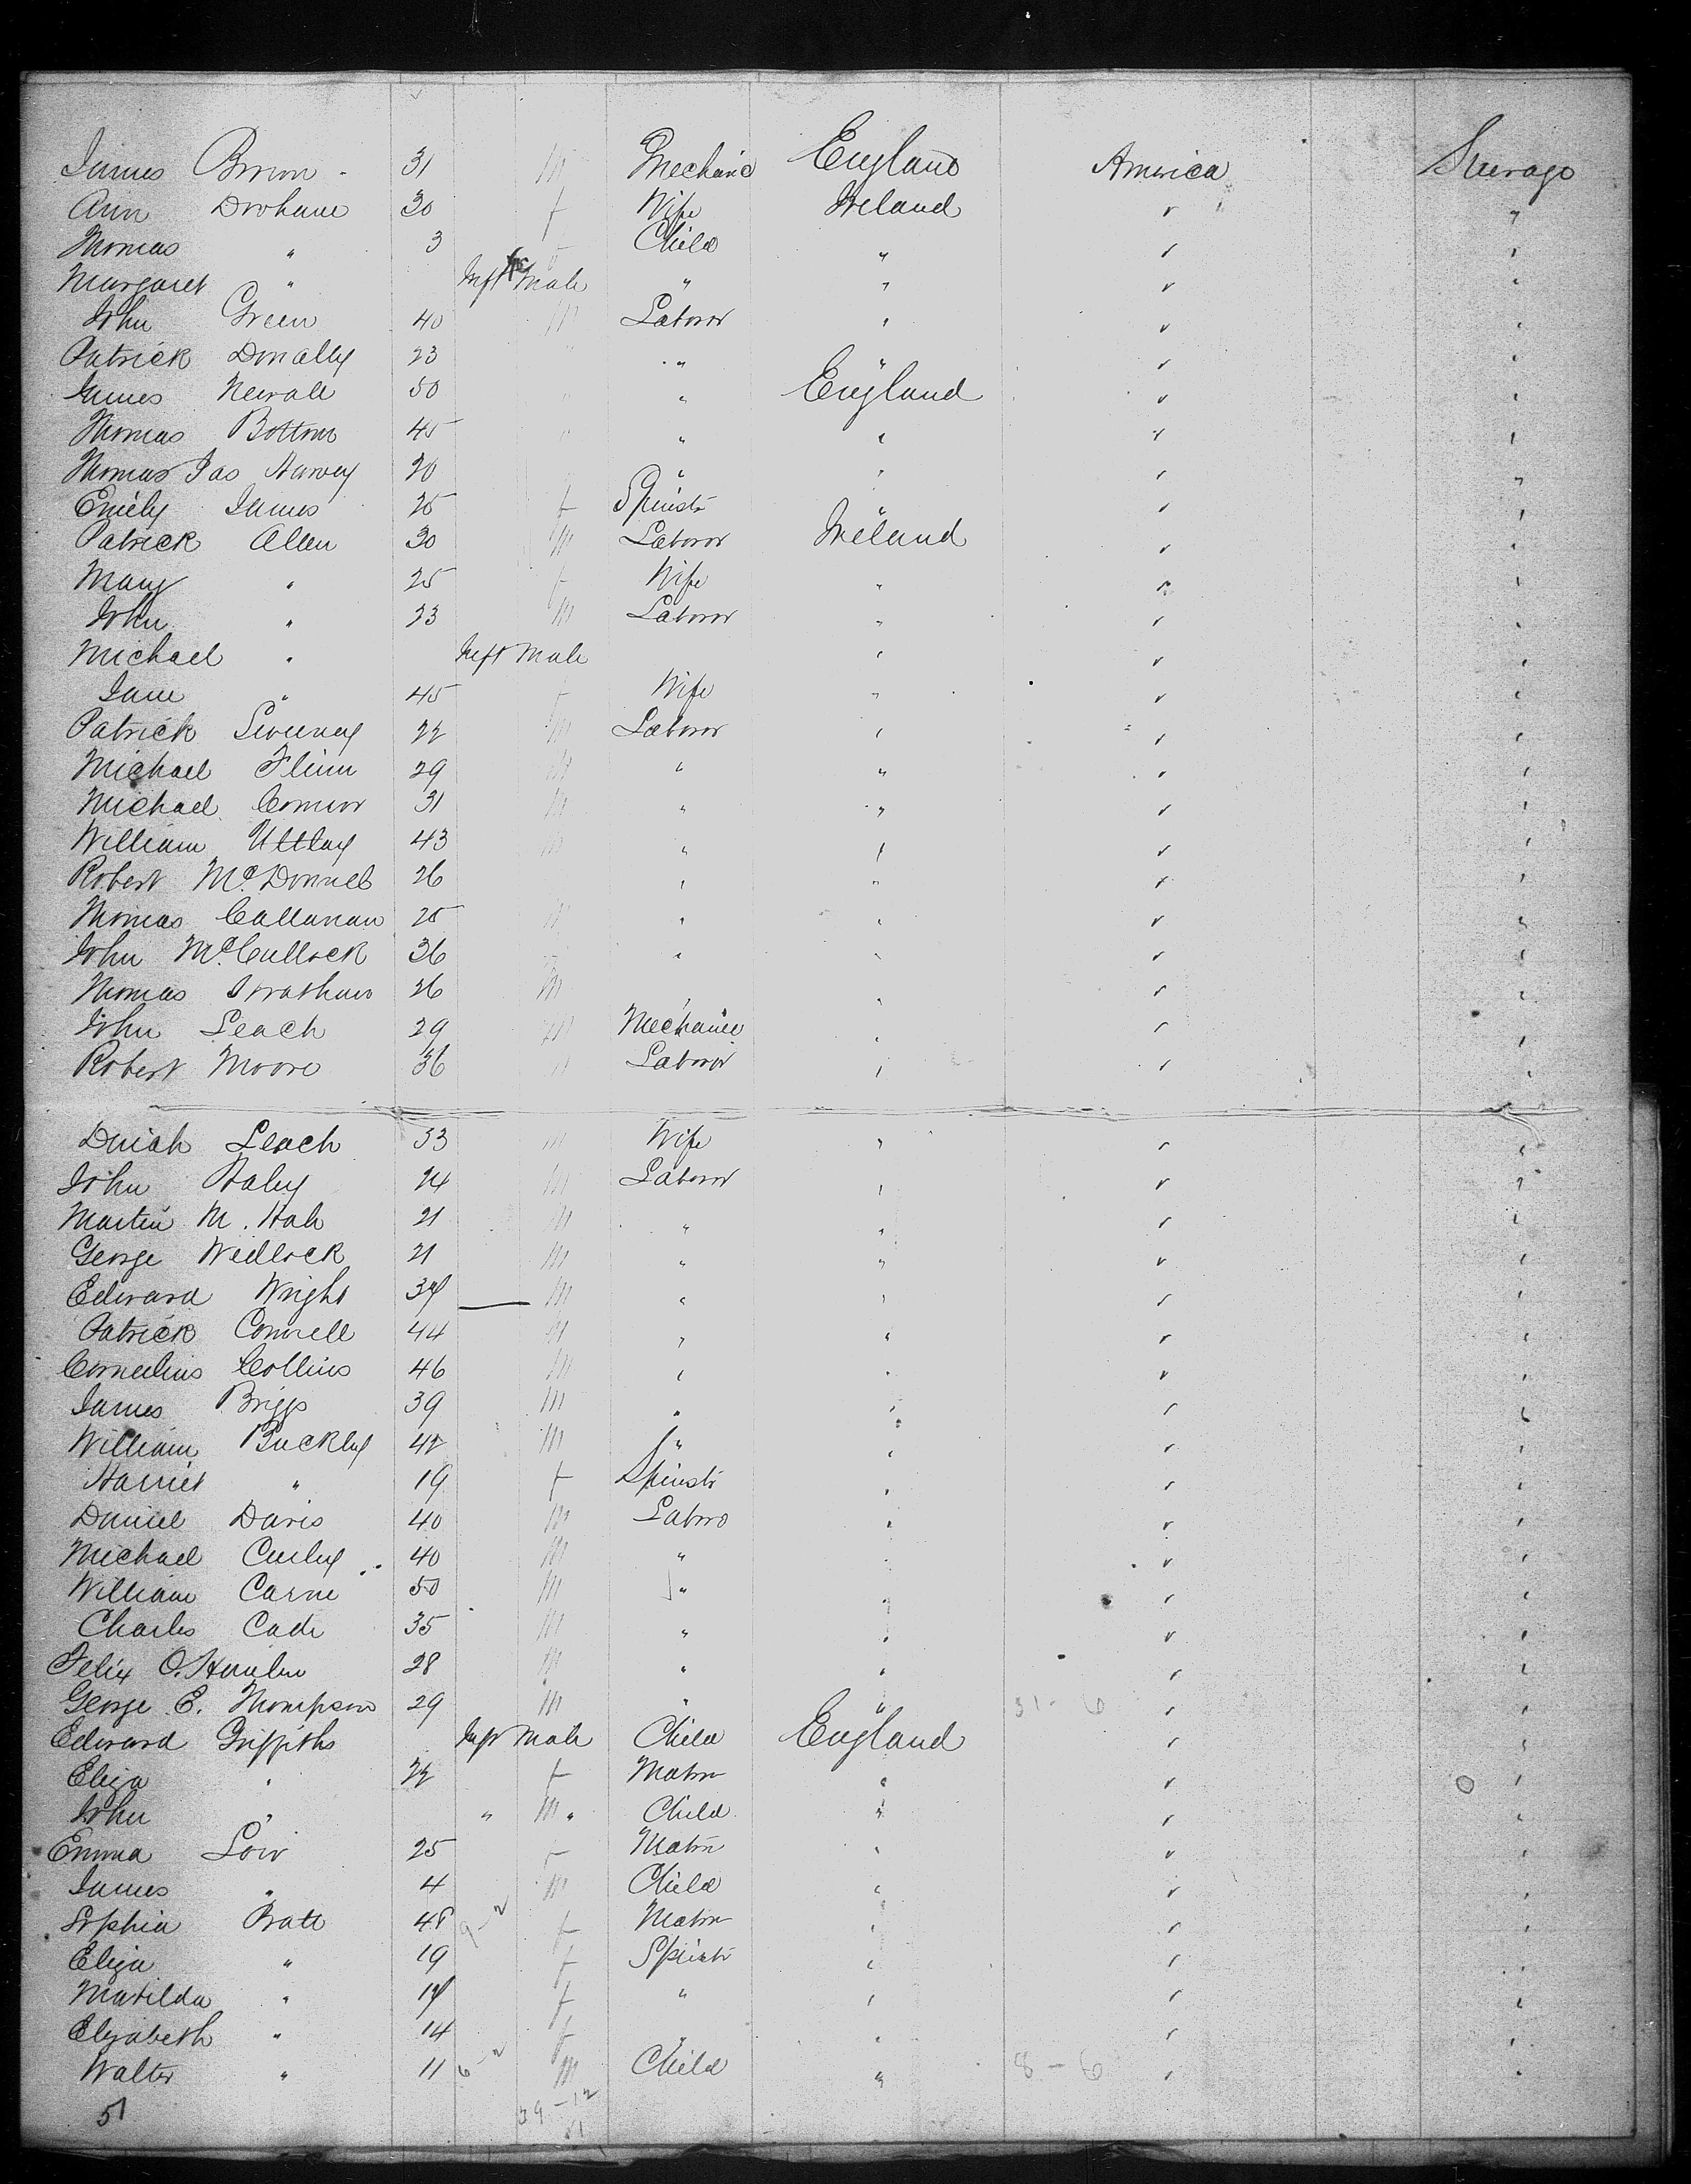 James Brown 31 m Mechanic England America Steerage
Ann Drohane 30 f Wife Ireland " "
Thomas " 3 Child " " "
Margaret " Inft Male " " " "
John Green 40 m Laboror " " "
Patrick Donally 23 " " " " "
James Newall 50 " " England " "
Thomas Bottom 45 " " " " "
Thomas Jas Harvey 20 " " " "
Emily James 25 f Spinstr " " "
Patrick Allen 30 m Laboror Ireland " "
Mary " 25 f Wife " " "
John " 23 m Laboror " " "
Michael " Inft Male " " "
Jane " 45 f Wife " " "
Patrick Sweeney 22 m Laboror " " "
Michael Flinn 29 m " " " "
Michael Connor 31 m " " " "
William Uttley 43 m " " " "
Robert McDonnell 26 " " " "
Thomas Callanan 25 m " " " "
John McCullock 36 " " " "
Thomas 26 m " " " "
John Leach 29 m Mechanic " " "
Robert Moore 36 m Laboror " " "
Dinah Leach 33 m Wife " " "
John Haley 24 m Laboror " " "
Martin M. Hale 21 m " " " "
George Wedlock 21 m " " " "
Edward Wright 34 m " " " "
Patrick Connell 44 m " " " "
Cornelius Collins 46 m " " " "
James Briggs 39 m " " " "
William Buckley 42 m " " " "
Harriet " 19 f Spinstr " " "
Daniel Davis 40 m Laboro " " "
Michael Curley 40 m " " " "
William Carne 50 m " " " "
Charles Cade 35 m " " " "
Felix O. 28 m " " " "
George E. Thompson 29 m " " 31-6 " "
Edward Griffiths Inft Male Child England " "
Eliza " 22 f Matrn " " "
John " " m " Child " " "
Emma Low 25 f Matrn " " "
James " 4 m Child " " "
Sophia Pratt 48 9-2 f Matrn " " "
Eliza " 19 f Spinstr " " "
Matilda " f " " " "
Elizabeth " 14 f " " " "
Walter " 11 6-2 m Child " 8-6 " "
51 39-12
51